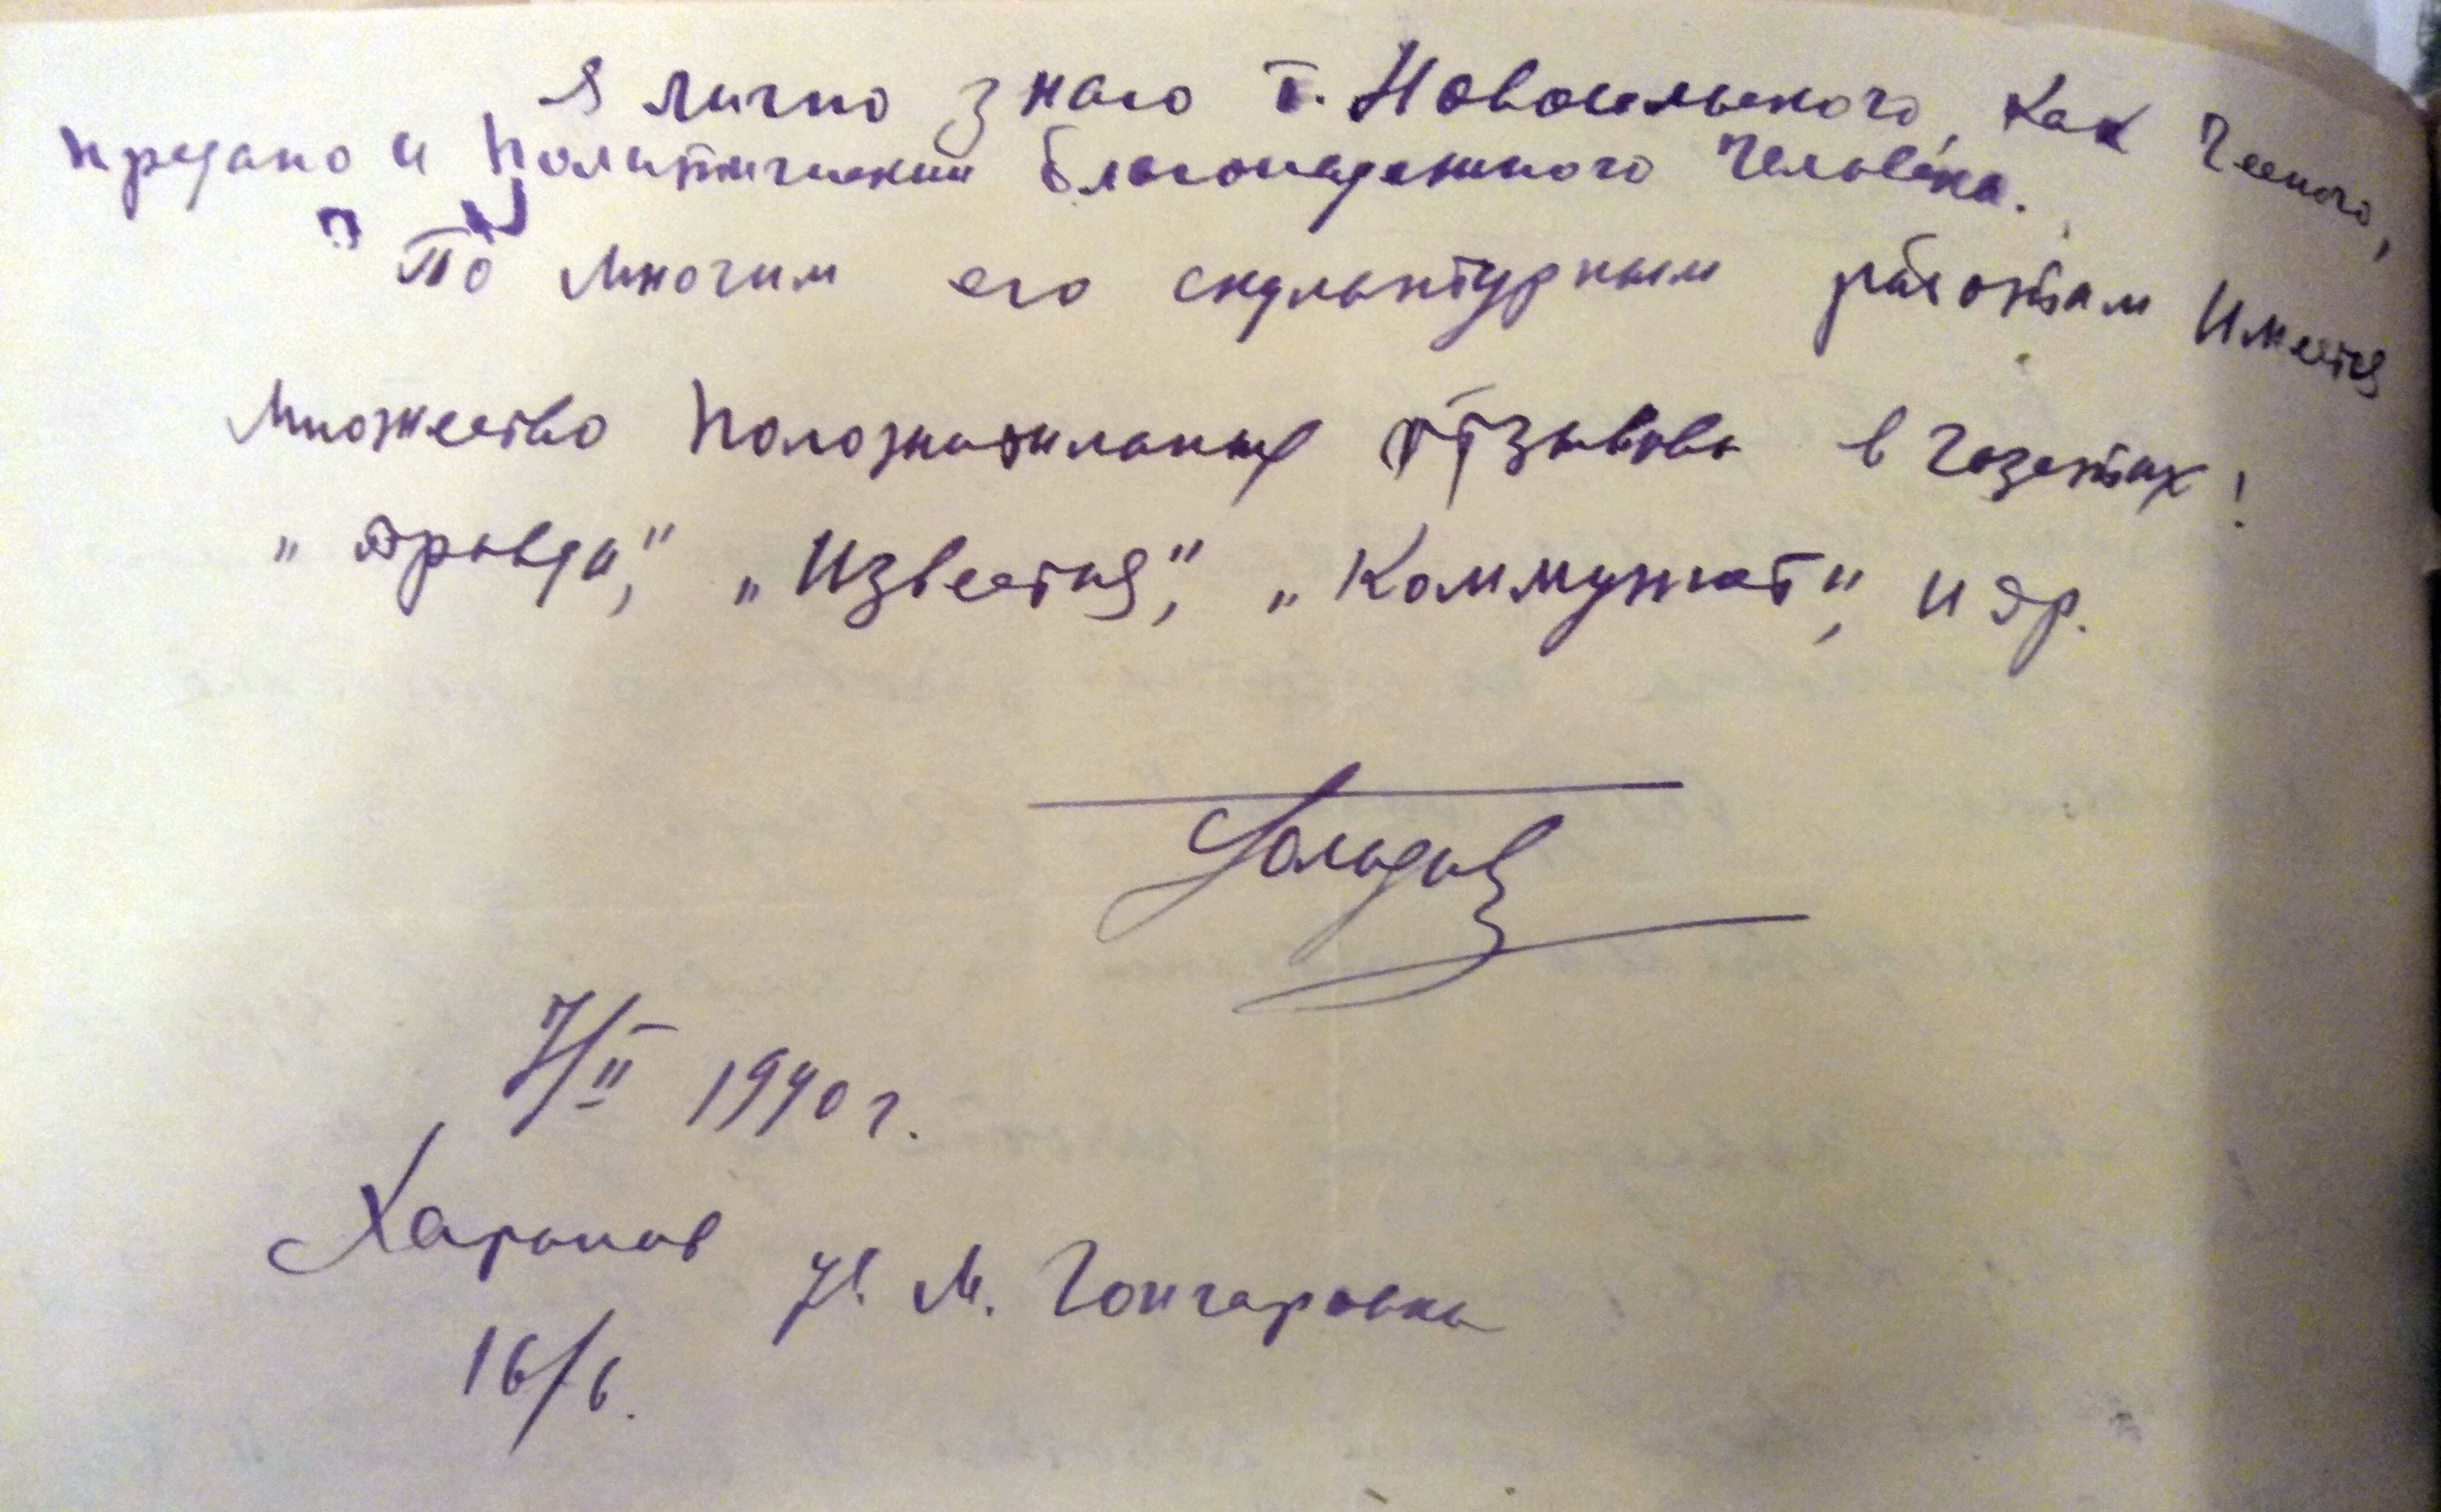 Я лично знаю т. Новосельского, как честного,
предано и политически благонадежного человека.
По многим его скульптурным работам имеется
множество положительных отзывов в газетах:
„Правда“, „Известия“, „Коммунист“, и др.
7/II 1940 г.
Харьков ул. М. Гончаровка
16/6.